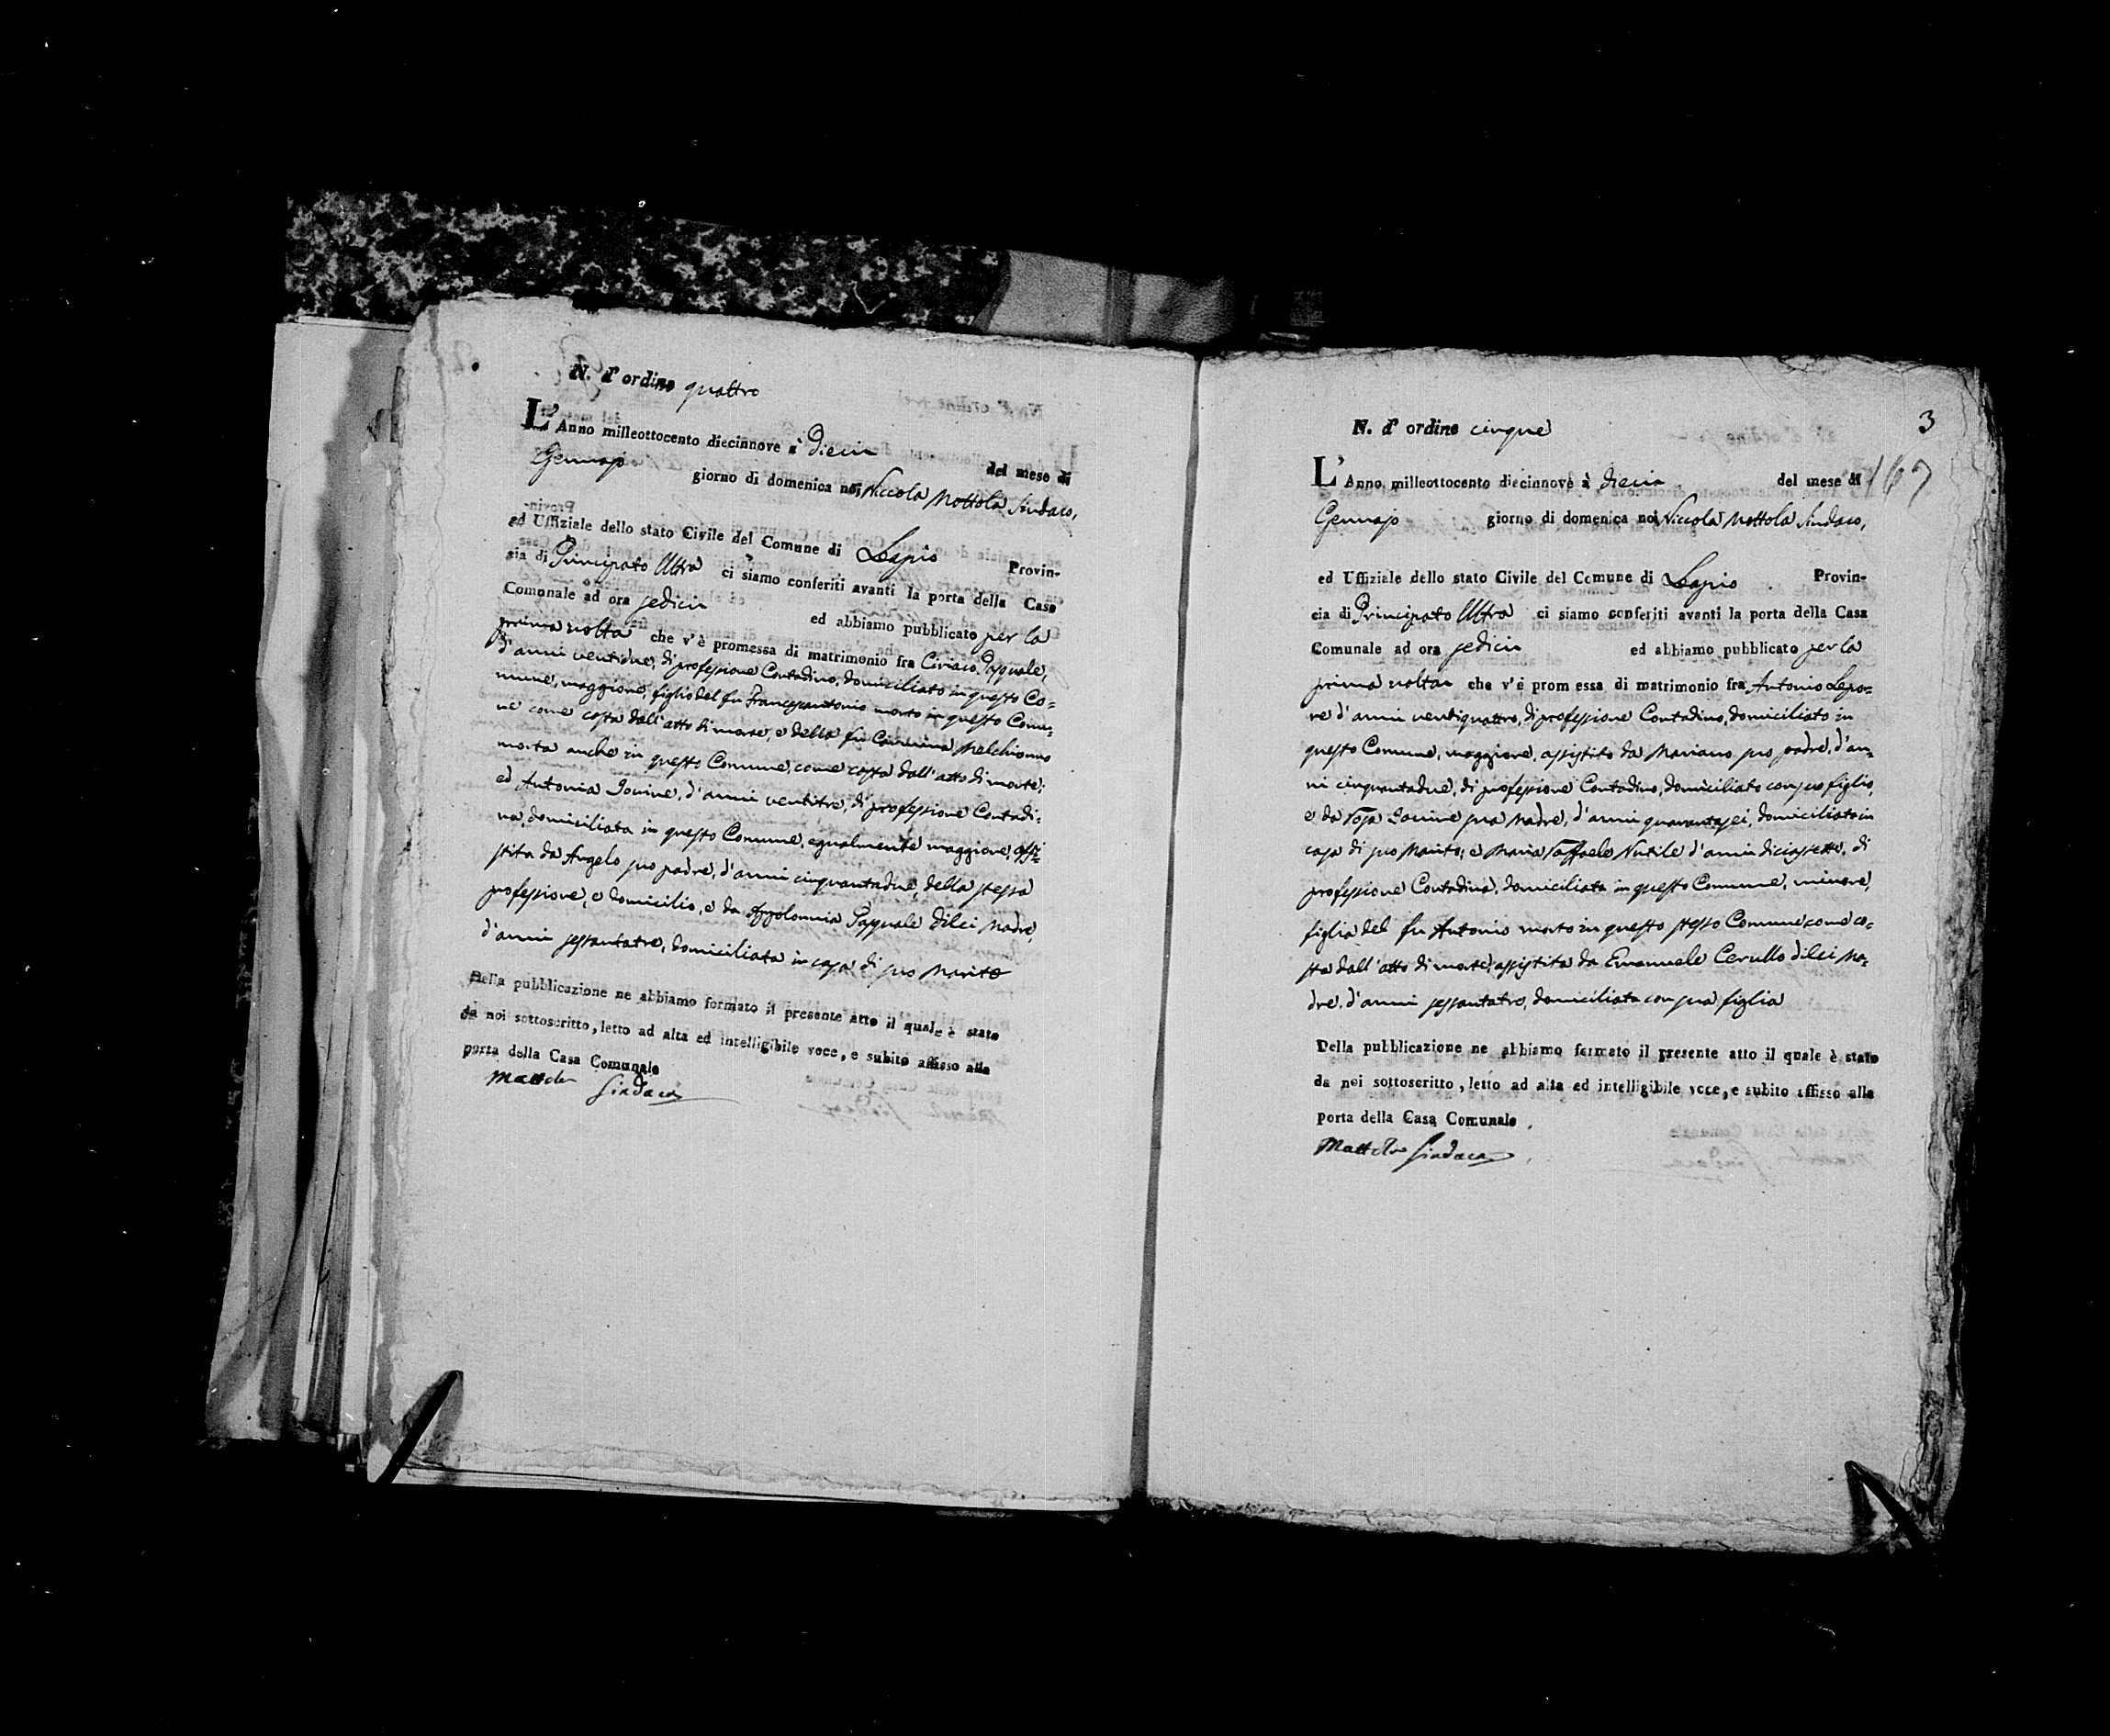 N. d'ordine quattro
L'Anno milleottocento diecinnove à Dieci del mese di
Gennajo giorno di domenica noi Niccola Nottola Sindaco,
ed Uffiziale dello stato Civile del Comune di Lapio Provin-
cia di Principato Ultra ci siamo conferiti avanti la porta della Casa
Comunale ad ora sedici ed abbiamo pubblicato per la
prima volta che v'è promessa di matrimonio fra Ciriaco Pasquale,
d'anni ventidue, di professione Contadino, domiciliato in questo Co=
mune, maggiore, figlio del fu Francescantonio morto in questo Comu=
ne come costa dall'atto di morte, e della fu Carmina Melchionno
morta anche in questo Comune, come costa dall'atto di morte;
ed Antonia Iovine, d'anni ventitre, di professione Contadi=
na, domiciliata in questo Comune, egualmente maggiore, assi=
stita da Angelo suo padre, d'anni cinquantadue, della stessa
professione, e domicilio, e da Appolonnia Pasquale di lei Madre,
d'anni sessantatre, domiciliata in casa di suo Marito
Della pubblicazione ne abbiamo formato il presente atto il quale è stato
da noi sottoscritto, letto ad alta ed intelligibile voce, e subito affisso alla
porta della Casa Comunale
Sindaco
3
N. d'ordine cinque
167
L'Anno milleottocento diecinnove à dieci del mese di
Gennajo giorno di domenica noi Niccola Nottola Sindaco,
ed Uffiziale dello stato Civile del Comune di Lapio Provin-
cia di Principato Ultra ci siamo conferiti avanti la porta della Casa
Comunale ad ora sedici ed abbiamo pubblicato per la
prima volta che v'è promessa di matrimonio fra Antonio Lepo=
re d'anni ventiquattro, di professione Contadino, domiciliato in
questo Comune, maggiore, assistito da Mariano suo padre, d'an=
ni cinquantadue, di professione Contadino, domiciliato con suo figlio,
e da Rosa Iovine sua Madre, d'anni quarantasei, domiciliata in
casa di suo Marito; e Maria Raffaele Nutile d'anni diciassette, di
professione Contadina, domiciliata in questo Comune, minore,
figlia del fu Antonio morto in questo stesso Comune come co=
sta dall'atto di morte, assistita da Emanuele Cerullo di lei Ma=
dre, d'anni sessantatre, domiciliata con sua figlia
Della pubblicazione ne abbiamo formato il presente atto il quale è stato
da noi sottoscritto, letto ad alta ed intelligibile voce, e subito affisso alla
porta della Casa Comunale
Sindaco